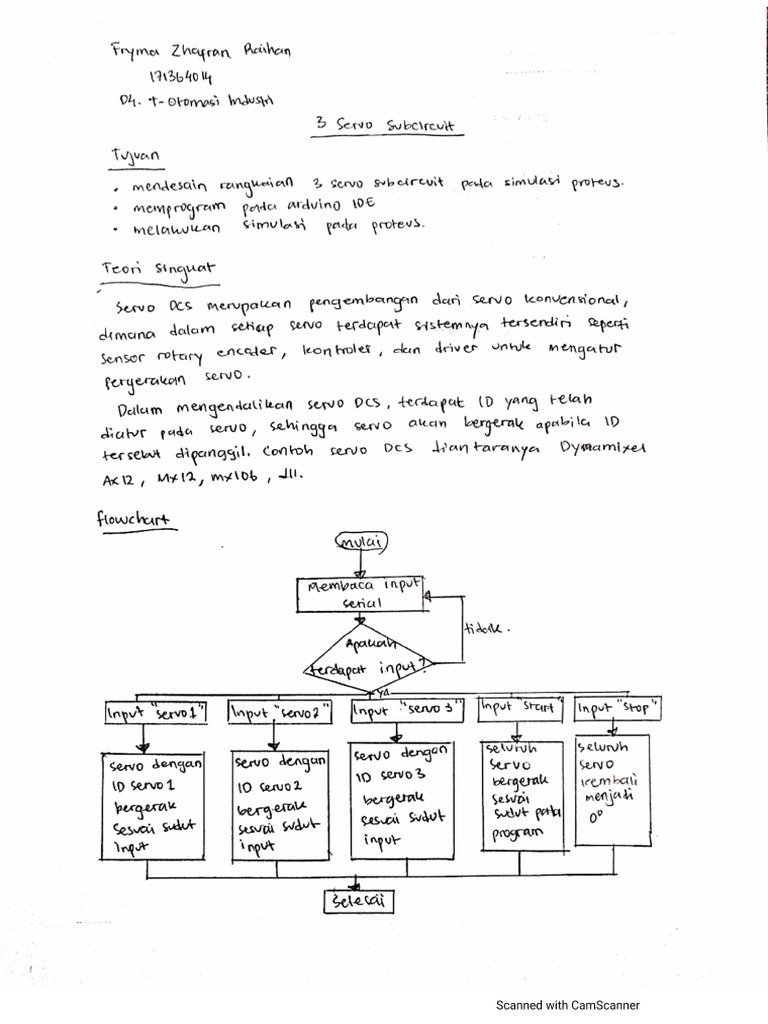 Fryma Zhafran Raihan
171364014
D4. T-Otomasi Industri
3 Servo Subcircuit
Tujuan
• mendesain rangkaian 3 servo subcircuit pada simulasi proteus.
• memprogram pada arduino IDE
• melakukan simulasi pada proteus.
Teori Singkat
Servo DCS merupakan pengembangan dari servo konvensional,
dimana dalam setiap servo terdapat sistemnya tersendiri seperti
sensor rotary encoder, kontroler, dan driver untuk mengatur
pergerakan servo.
Dalam mengendalikan servo DCS, terdapat ID yang telah
diatur pada servo, sehingga servo akan bergerak apabila ID
tersebut dipanggil. Contoh servo DCS diantaranya Dynamixel
AX12, MX12, mx106, dll.
flowchart
mulai
Membaca input
serial
tidak.
Apakah
terdapat input?
ya
Input "servo1"
Input "servo2"
Input "servo 3"
Input "start"
Input "stop"
servo dengan
ID servo1
bergerak
sesuai sudut
Input
servo dengan
ID servo2
bergerak
sesuai sudut
input
servo dengan
ID servo3
bergerak
sesuai sudut
input
seluruh
servo
bergerak
sesuai
sudut pada
program
seluruh
servo
kembali
menjadi
0°
Selesai
Scanned with CamScanner